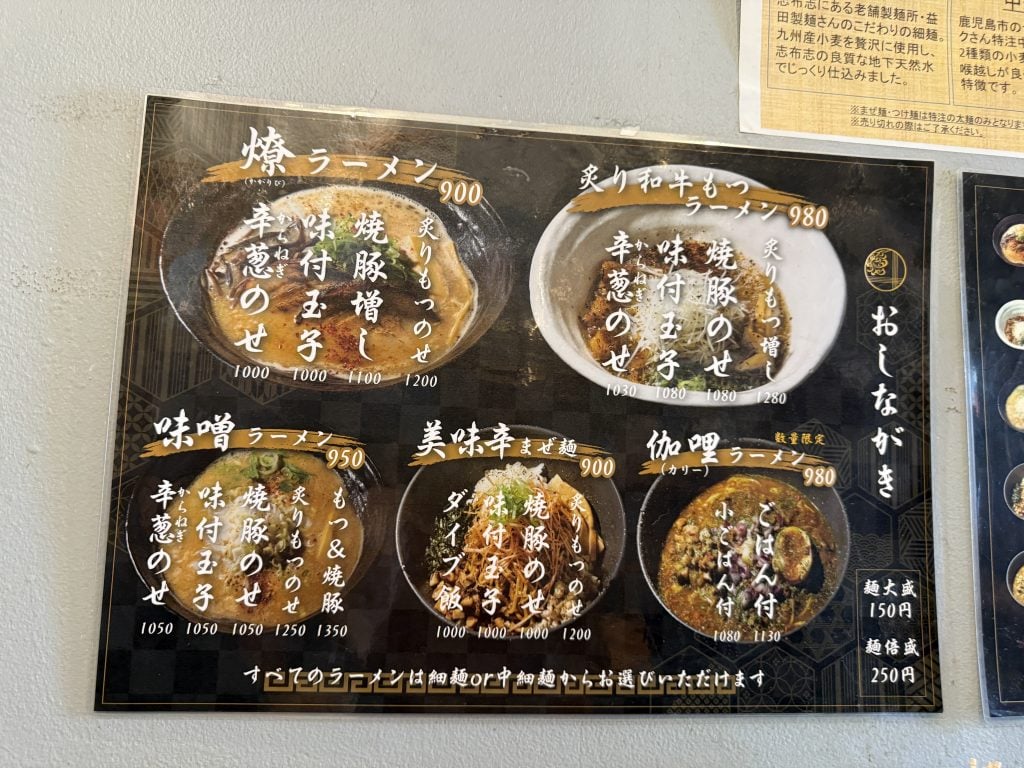 志布志にある老舗製麺所・益
田製麺さんのこだわりの細麺。
九州産小麦を贅沢に使用し、
志布志の良質な地下天然水
でじっくり仕込みました。
鹿児島市の
クさん特注中
2種類の小麦
喉越しが良
特徴です。
※まぜ麺・つけ麺は特注の太麺のみとなりま
※売り切れの際はご了承ください。
燎ラーメン 900
(かがりび)
辛葱のせ 1000
からねぎ
味付玉子 1000
焼豚増し 1100
炙りもつのせ 1200
炙り和牛もつ
ラーメン 980
辛葱のせ 1030
からねぎ
味付玉子 1080
焼豚のせ 1080
炙りもつ増し 1280
おしながき
味噌ラーメン 950
辛葱のせ 1050
からねぎ
味付玉子 1050
焼豚のせ 1050
炙りもつのせ 1250
もつ&焼豚 1350
美味辛まぜ麺 900
ダイブ飯 1000
味付玉子 1000
焼豚のせ 1000
炙りもつのせ 1200
数量限定
伽哩ラーメン 980
(カリー)
小ごはん付 1080
ごはん付 1130
麺大盛
150円
麺倍盛
250円
すべてのラーメンは細麺or中細麺からお選びいただけます